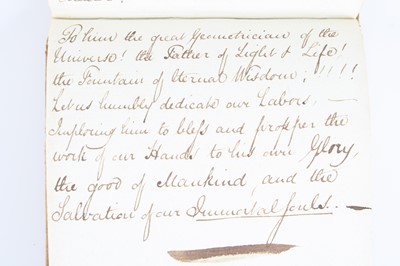 To him the great Geometrician of the
Universe! the Father of Light & Life!
the Fountain of Eternal Wisdom, ! ! ! !
Let us humbly dedicate our Labors, —
Imploring him to bless and prosper the
work of our Hands to his own Glory,
the good of Mankind, and the
Salvation of our Immortal Souls. —